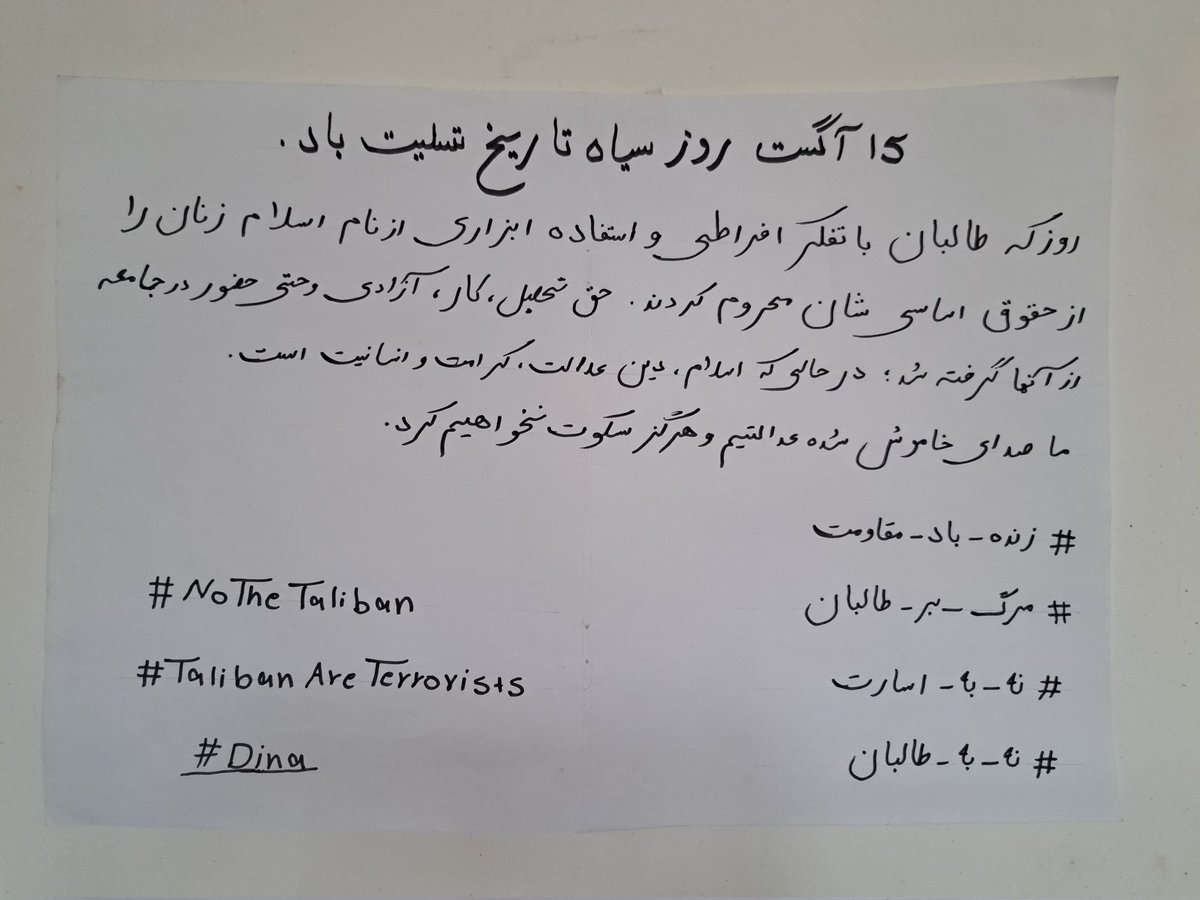 15 آگست روز سیاه تاریخ تسلیت باد.
روزکه طالبان با تفکر افراطی و استفاده ابزاری از نام اسلام زنان را
از حقوق اساسی شان محروم کردند. حق تحصیل، کار، آزادی و حتی حضور در جامعه
از آنها گرفته شد؛ در حالی که اسلام، دین عدالت، کرامت و انسانیت است.
ما صدای خاموش شده عدالتیم و هرگز سکوت نخواهیم کرد.
# زنده_باد_مقاومت
# مرگ_بر_طالبان
#NoTheTaliban
# نه_به_اسارت
#Taliban Are Terrorists
# نه_به_طالبان
#Dina